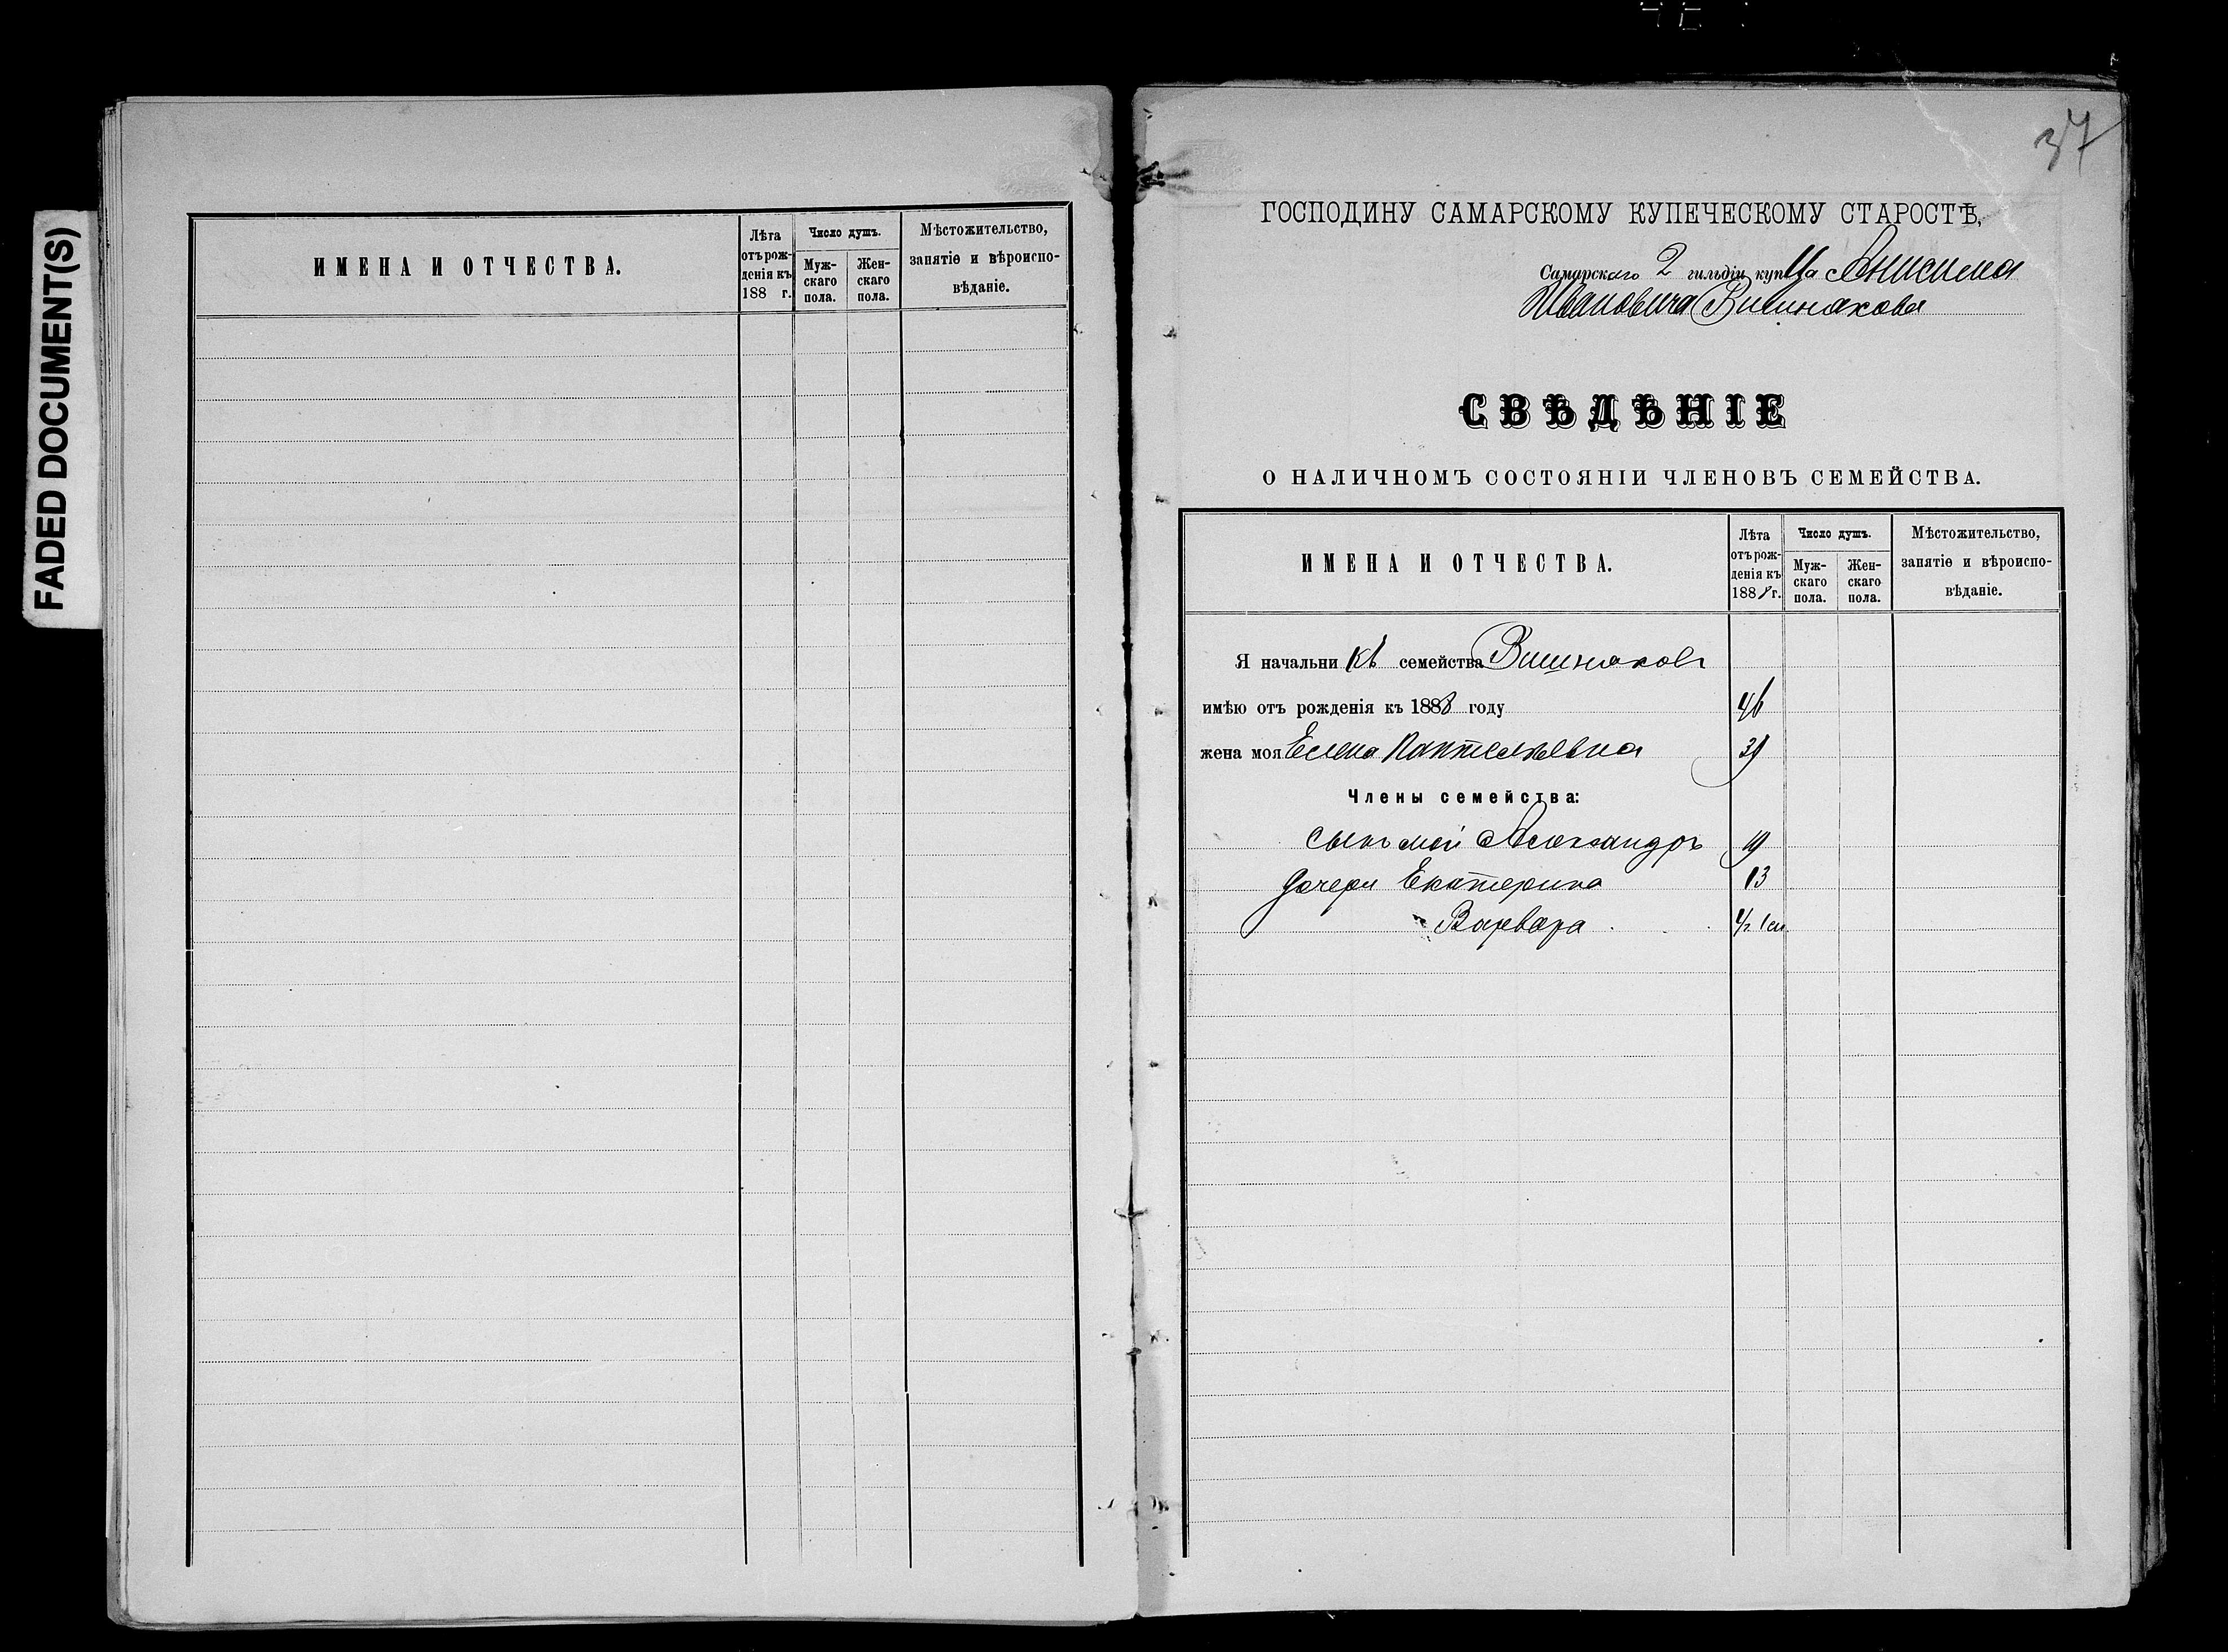 FADED DOCUMENT(S)
ИМЕНА И ОТЧЕСТВА.
Лѣта отъ рожденія къ 188 г.
Число душъ.
Мужскаго пола.
Женскаго пола.
Мѣстожительство, занятіе и вѣроисповѣданіе.
37
ГОСПОДИНУ САМАРСКОМУ КУПЕЧЕСКОМУ СТАРОСТѢ,
Самарскаго 2 гильдіи купца Анисима
Ивановича Вишнякова
СВѢДѢНІЕ
О НАЛИЧНОМЪ СОСТОЯНІИ ЧЛЕНОВЪ СЕМЕЙСТВА.
ИМЕНА И ОТЧЕСТВА.
Лѣта отъ рожденія къ 188 г.
Число душъ.
Мужскаго пола.
Женскаго пола.
Мѣстожительство, занятіе и вѣроисповѣданіе.
Я начальникъ семейства Вишняковъ
имѣю отъ рожденія къ 1888 году 46
жена моя Елена Пантелѣевна 39
Члены семейства:
сынъ мой Александръ 19
дочери Екатерина 13
Варвара